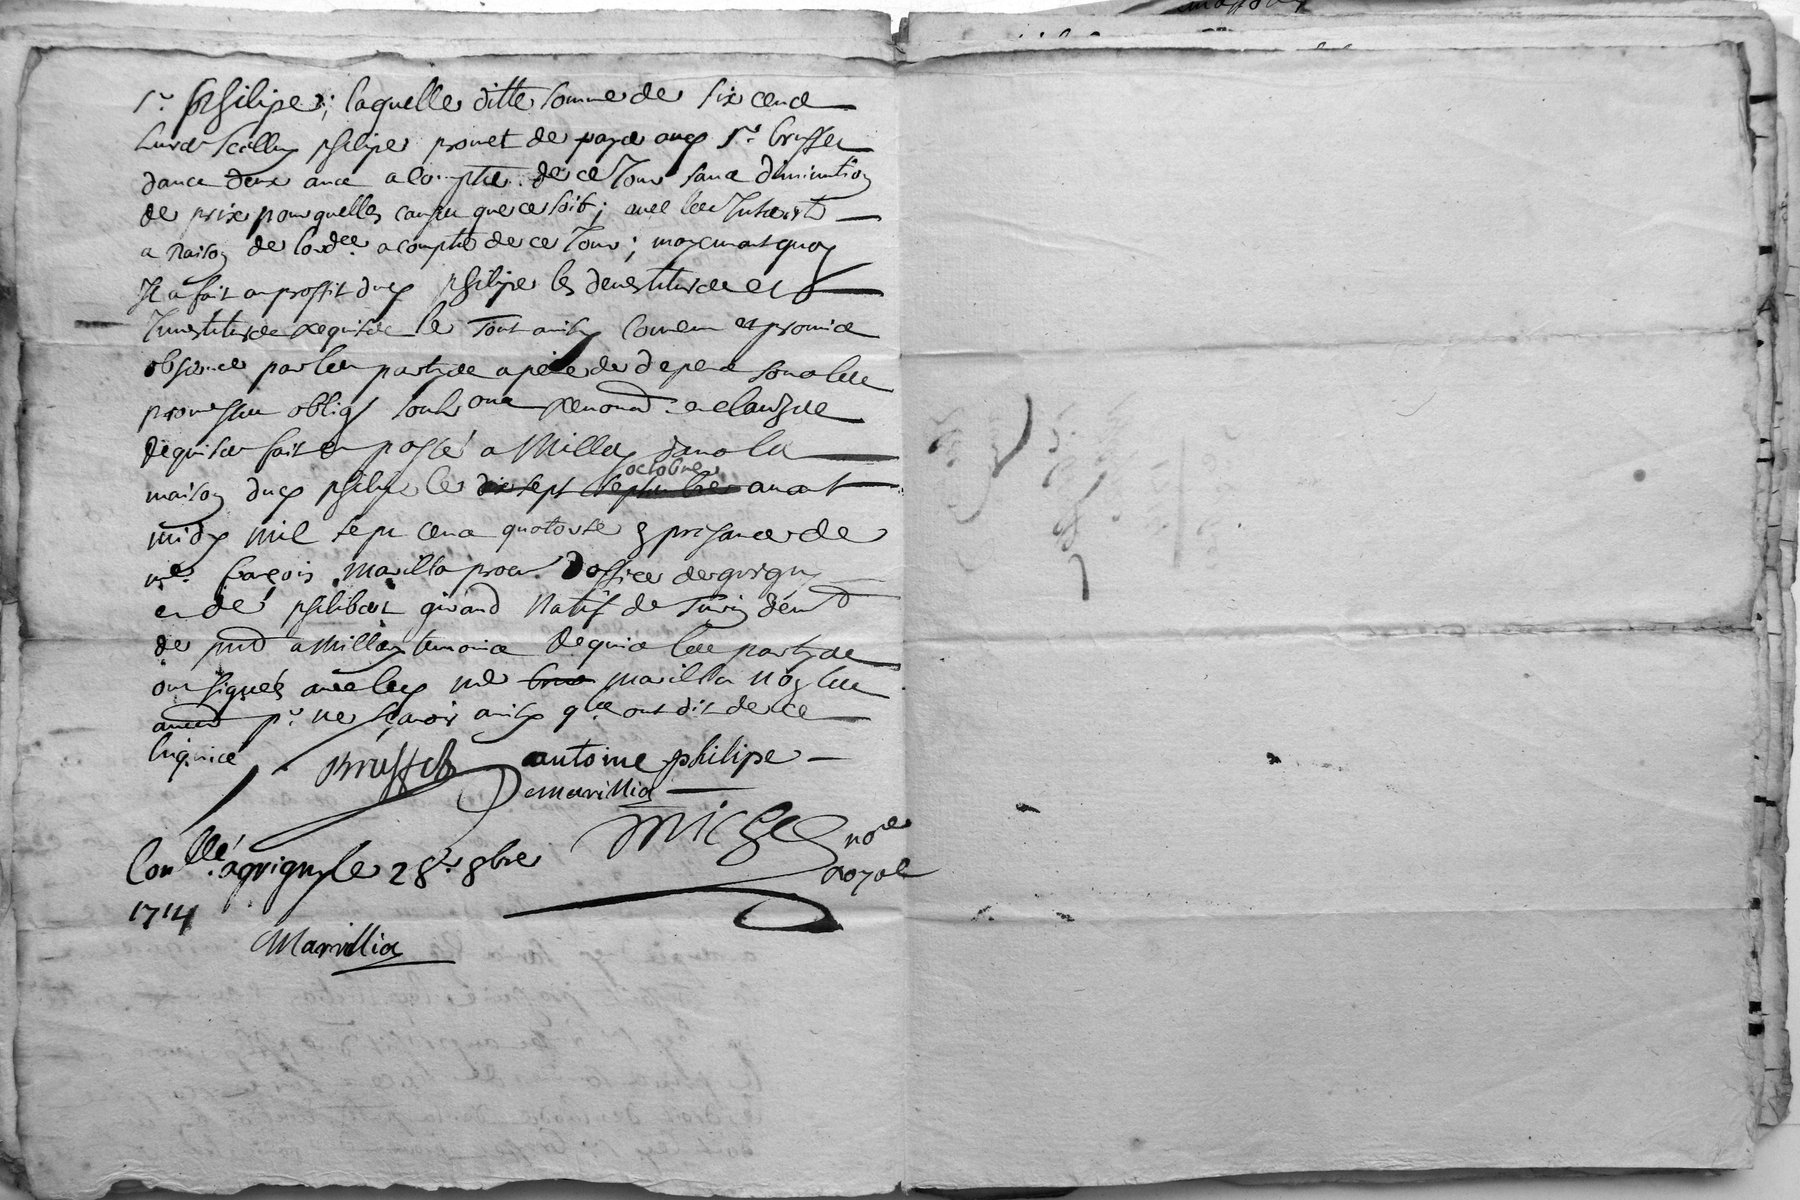 Sr. philipe; laquelle ditte somme de six cens
livres icelluy philipe promet de payer aud Sr. brussel
dans deux ans a compter de ce Jour sans diminution
de prix pour quelles causes que ce soit; avec les Interests
a raison de l'ordce. a compter de ce Jour; moyenant quoy
Il a fait au proffit dud philipe les devestitures et
Investitures requises le tout ainsy convenu et promis
observer par les partyes a peine de depens sous les
promesses obligs soub ons renond. et clauzes
requises fait et passé a Milly dans la
maison dud philipe le dix sept septembre octobre avant
midy mil sept cens quatorse en presance de
me. francois marillia procr. d'office de grigny
et de philibert girard natif de Turin demt
de pnt a Milly temoins requis les partyes
ont signées avec led me marillia non led
girard pr. ne sçavoir ainsy qu'ils ont dit de ce
enquis
brussel antoine philipe
Marillia
Michel nore
royal
Conllé. a grigny le 28e. 8bre
1714
Marillia